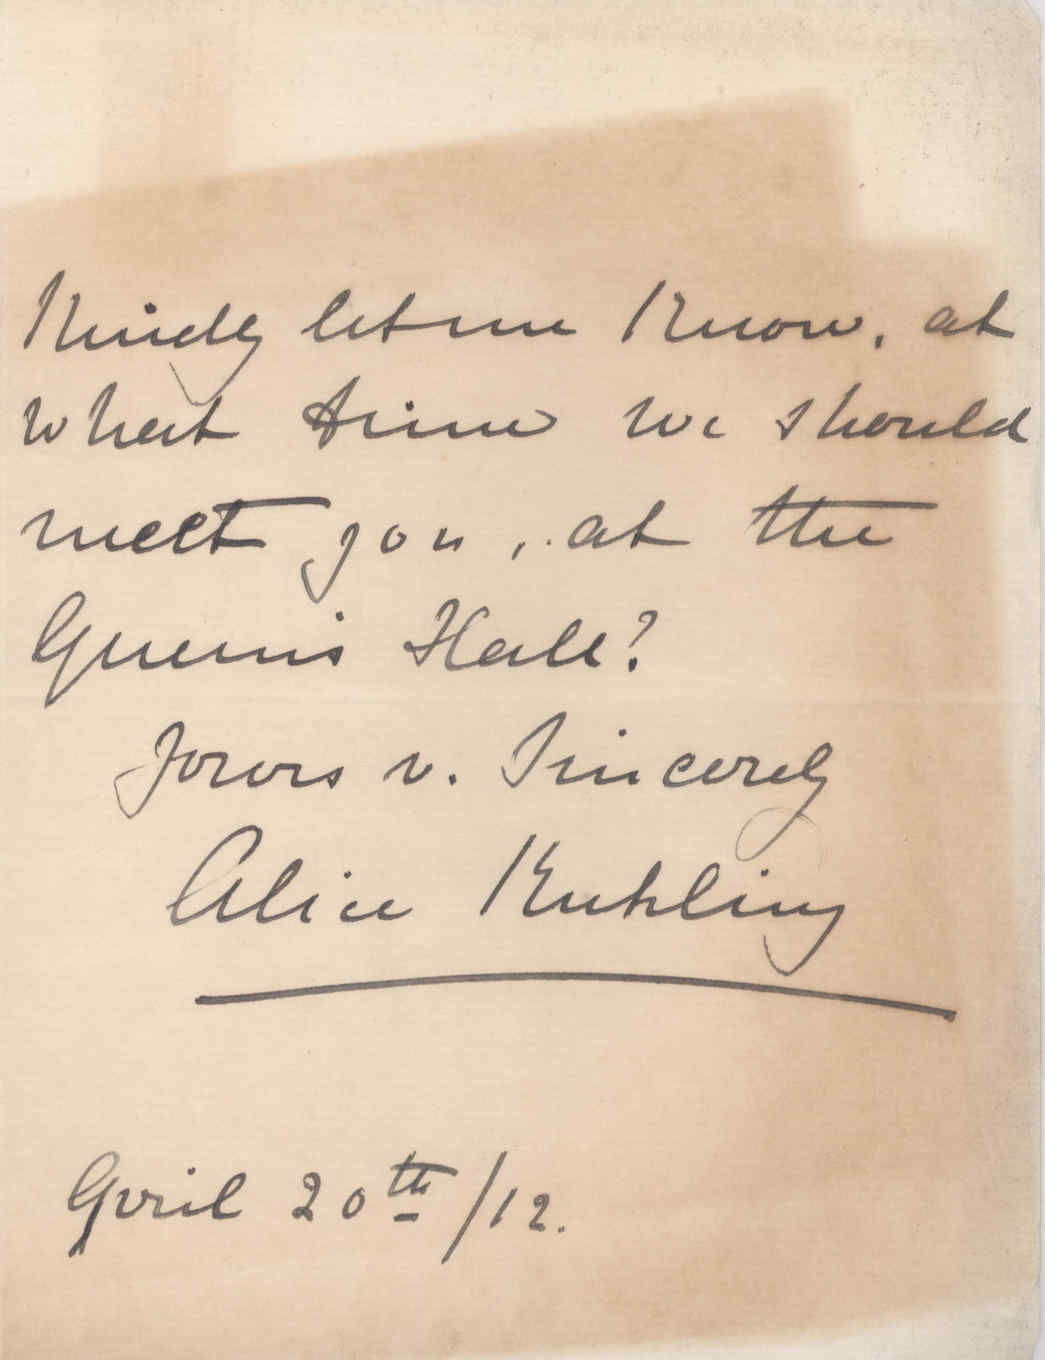 Kindly let me know, at
what time we should
meet you, at the
Queen's Hall?
Yours v. Sincerely
Alice Kuhling
April 20th/12.